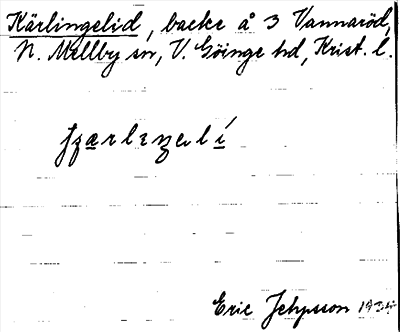 Kärlingelid, backe å 3 Vannaröd,
N. Mellby sn, V. Göinge hd, Krist. l.
Eric Jehpsson 1934